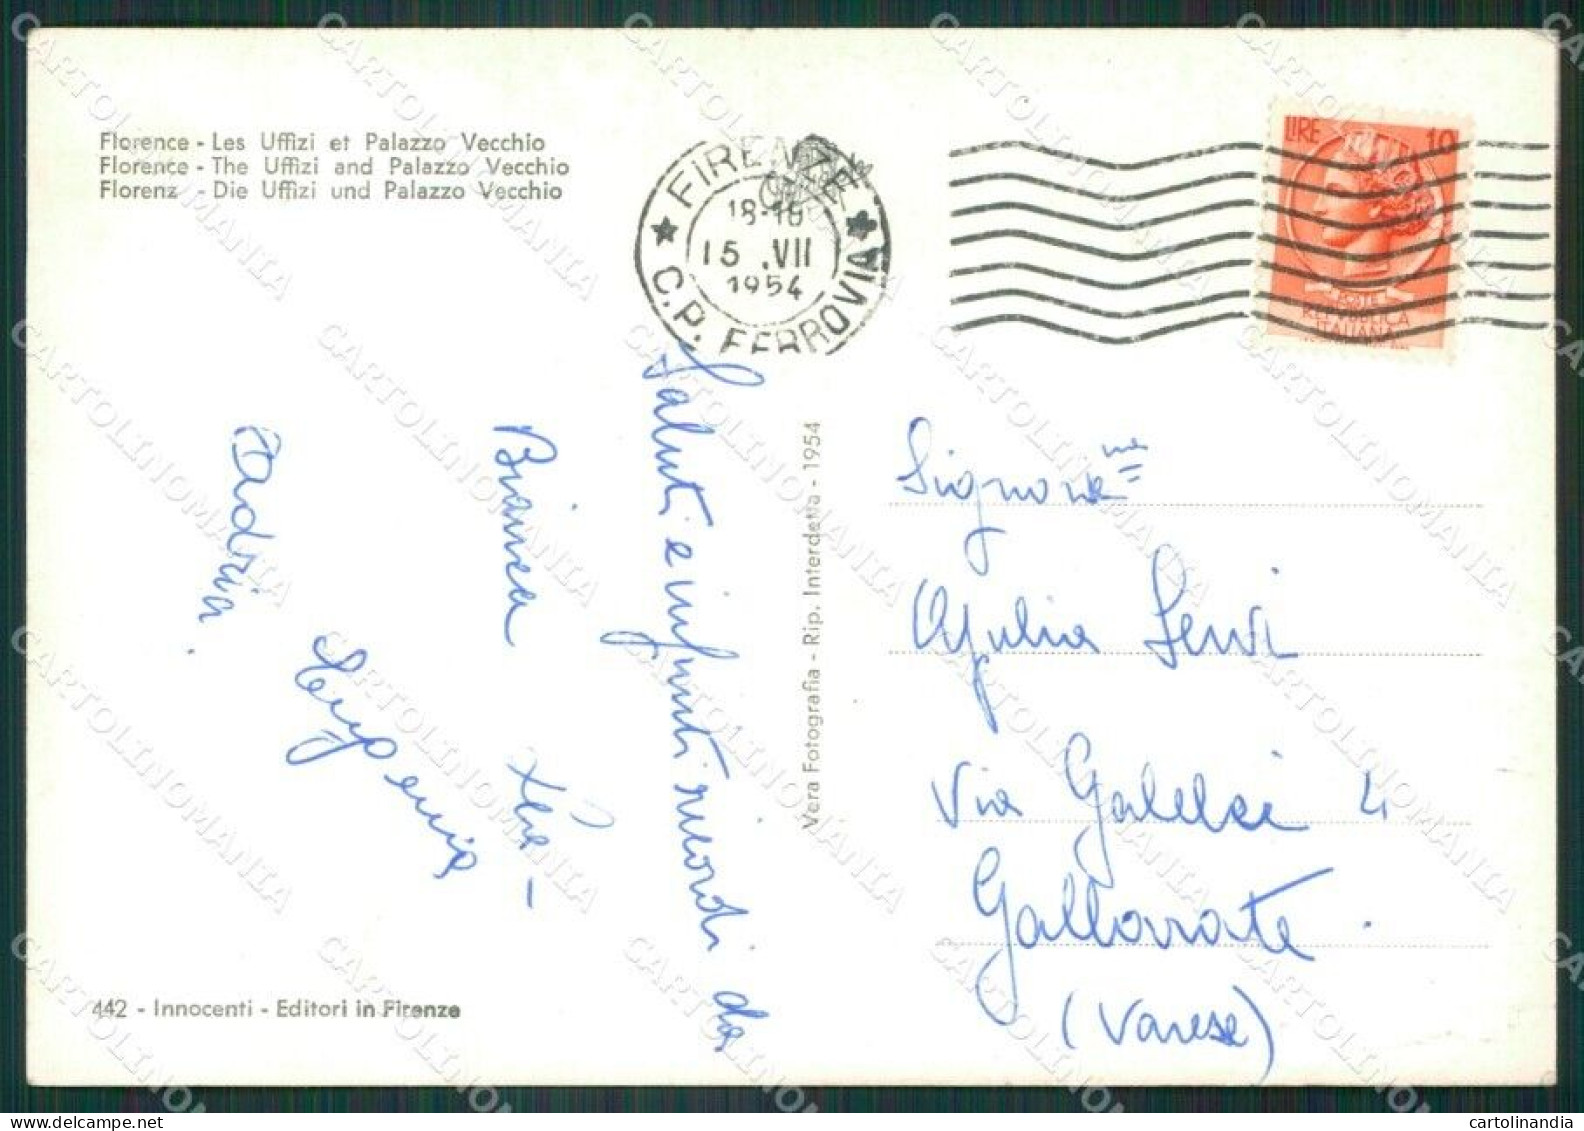 Florence - Les Uffizi et Palazzo Vecchio
Florence - The Uffizi and Palazzo Vecchio
Florenz - Die Uffizi und Palazzo Vecchio
FIRENZE
18-19
15 .VII
1954
C.P. FERROVIA
LIRE 10
POSTE
REPVBBLICA
ITALIANA
Saluti e infiniti ricordi da
Bianca
Eugenia
Adria.
Vera Fotografia - Rip. Interdetta - 1954
Signorina
Giulia Servi
Via Galilei 4
Gallarate
(Varese)
442 - Innocenti - Editori in Firenze
CARTOLINOMANIA
cartolinandia